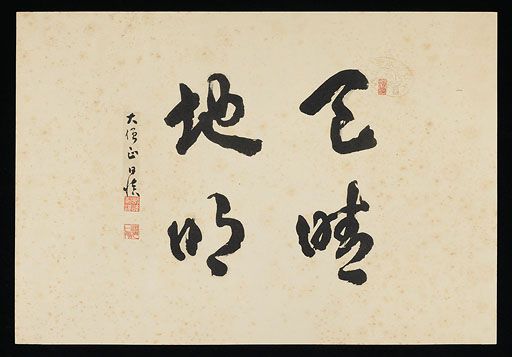 天晴
地明
大僧正日